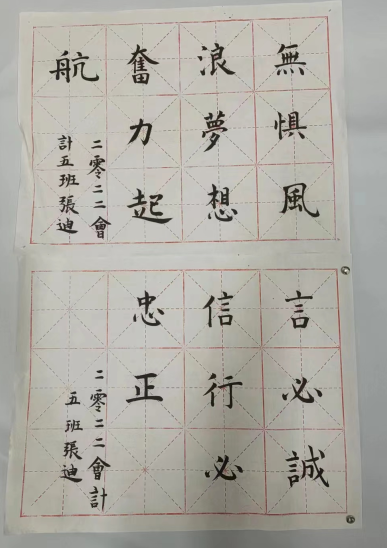 無懼風
浪夢想
奮力起
航
二零二二會
計五班張迪
言必誠
信行必
忠正
二零二二會計
五班張迪